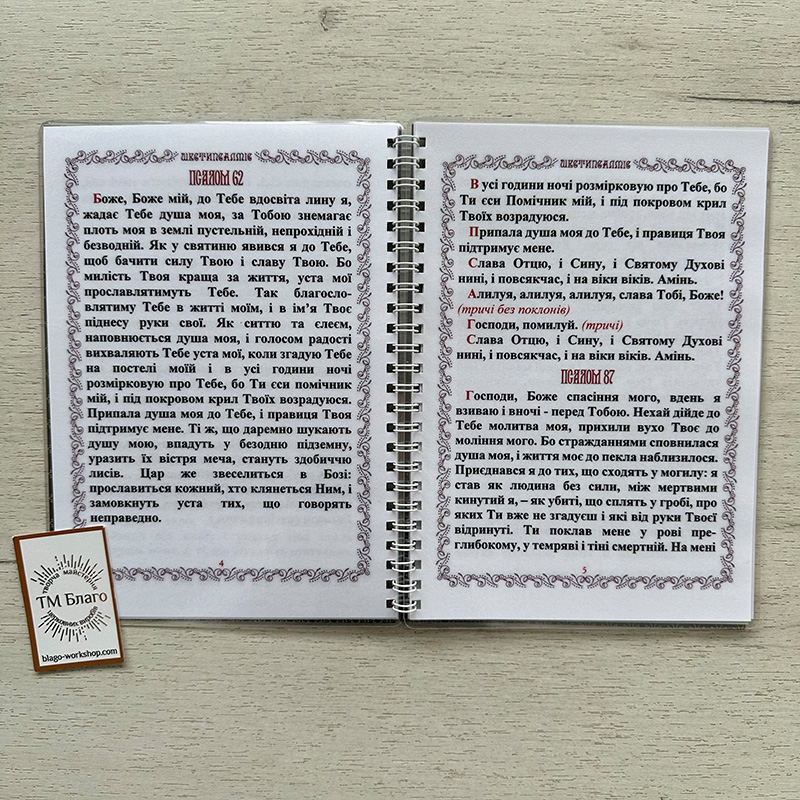 ШЕСТИПСАЛМІЄ
ПСАЛОМ 62
Боже, Боже мій, до Тебе вдосвіта лину я,
жадає Тебе душа моя, за Тобою знемагає
плоть моя в землі пустельній, непрохідній і
безводній. Як у святиню явився я до Тебе,
щоб бачити силу Твою і славу Твою. Бо
милість Твоя краща за життя, уста мої
прославлятимуть Тебе. Так благосло-
влятиму Тебе в житті моїм, і в ім’я Твоє
піднесу руки свої. Як ситтю та єлеєм,
наповнюється душа моя, і голосом радості
вихваляють Тебе уста мої, коли згадую Тебе
на постелі моїй і в усі години ночі
розмірковую про Тебе, бо Ти єси помічник
мій, і під покровом крил Твоїх возрадуюся.
Припала душа моя до Тебе, і правиця Твоя
підтримує мене. Ті ж, що даремно шукають
душу мою, впадуть у безодню підземну,
уразить їх вістря меча, стануть здобиччю
лисів. Цар же звеселиться в Бозі:
прославиться кожний, хто клянеться Ним, і
замовкнуть уста тих, що говорять
неправедно.
4
ШЕСТИПСАЛМІЄ
В усі години ночі розмірковую про Тебе, бо
Ти єси Помічник мій, і під покровом крил
Твоїх возрадуюся.
Припала душа моя до Тебе, і правиця Твоя
підтримує мене.
Слава Отцю, і Сину, і Святому Духові
нині, і повсякчас, і на віки віків. Амінь.
Алилуя, алилуя, алилуя, слава Тобі, Боже!
(тричі без поклонів)
Господи, помилуй. (тричі)
Слава Отцю, і Сину, і Святому Духові
нині, і повсякчас, і на віки віків. Амінь.
ПСАЛОМ 87
Господи, Боже спасіння мого, вдень я
взиваю і вночі - перед Тобою. Нехай дійде до
Тебе молитва моя, прихили вухо Твоє до
моління мого. Бо стражданнями сповнилася
душа моя, і життя моє до пекла наблизилося.
Приєднався я до тих, що сходять у могилу: я
став як людина без сили, між мертвими
кинутий я, – як убиті, що сплять у гробі, про
яких Ти вже не згадуєш і які від руки Твоєї
відринуті. Ти поклав мене у рові пре-
глибокому, у темряві і тіні смертній. На мені
5
творча майстерня
ТМ Благо
церковних виробів
blago-workshop.com